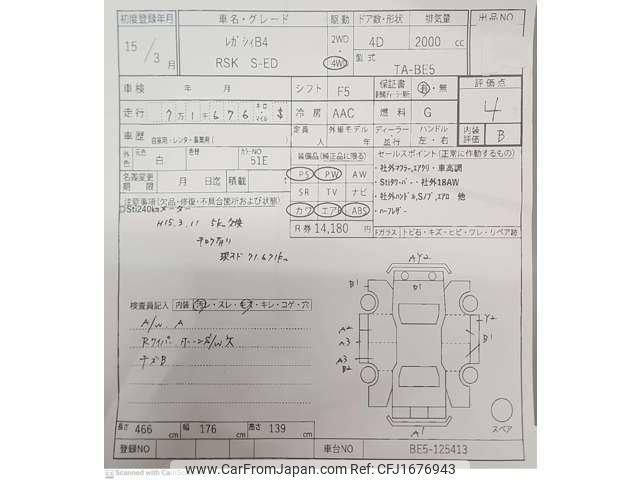 初度登録年月 車名・グレード 駆動 ドア数・形状 排気量 出品NO
15/3月 レガシィB4 2WD 4D 2000 cc
RSK S-ED 4WD 型式 TA-BE5
車検 年 月 シフト F5 保証書 有・無 評価点
走行 7万1千676 キロ マイル $ 冷房 AAC 燃料 G 4
車歴 自家用・レンタ・事業用 定員 人 外車モデル 年 ディーラー 並行 ハンドル 左・右 内装評価 B
外色 元色 白 色替 カラーNO 51E 装備品(純正品に限る) セールスポイント(正常に作動するもの)
名義変更期限 月 日迄 積載 PS PW AW ・社外マフラー,エアクリ・車高調
SR TV ナビ ・Stiタワーバー・社外18AW
注意事項(欠品・修復・不具合箇所および状態) カワ エアB ABS ・社外ハンドル,Sノブ,エアロ 他
Sti240kmメーター R券 14,180円 ・ハーフレザー
H15.3.11 5km交換 Fガラス トビ石・キズ・ヒビ・ワレ・リペア跡
71.671km
AY2
B1 D1
Y2
A2
A3 B1
A3
B2
A1
スペア
検査員記入 内装 汚レ・スレ・キズ・キレ・コゲ・穴
A/W A
チズB
長さ 466 cm 幅 176 cm 高さ 139 cm
登録NO 車台NO BE5-125413
Scanned with CamScanner
www.CarFromJapan.com - CFJ1676943